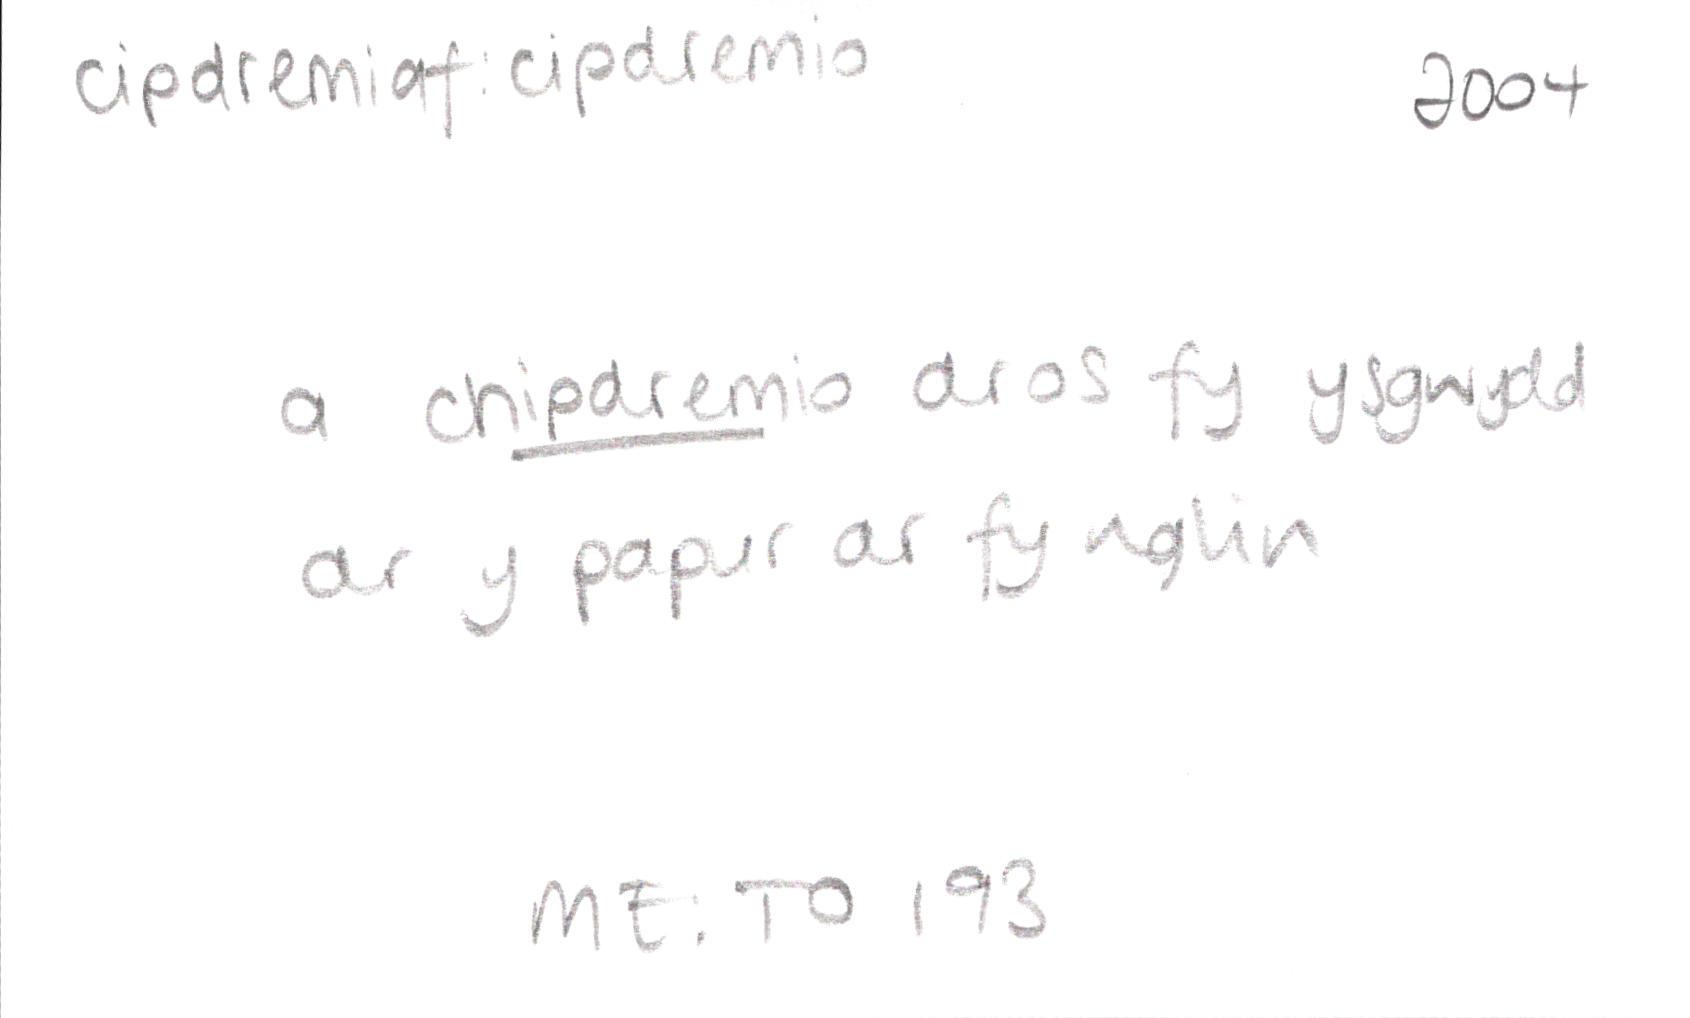 cipdremiaf: cipdremio 2004
a chipdremio dros fy ysgwydd
ar y papur ar fy nglin
ME. TO 193